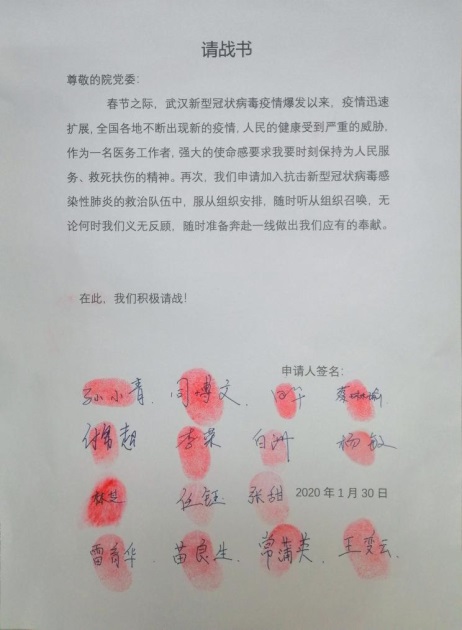 请战书
尊敬的院党委：
春节之际，武汉新型冠状病毒疫情爆发以来，疫情迅速
扩展，全国各地不断出现新的疫情，人民的健康受到严重的威胁，
作为一名医务工作者，强大的使命感要求我要时刻保持为人民服
务、救死扶伤的精神。再次，我们申请加入抗击新型冠状病毒感
染性肺炎的救治队伍中，服从组织安排，随时听从组织召唤，无
论何时我们义无反顾，随时准备奔赴一线做出我们应有的奉献。
在此，我们积极请战！
申请人签名：
孙小青. 周博文.
李荣 白洲 杨敏
林芝 任钰 张甜 2020年1月30日
雷育华 苗良生. 常蒲英. 王变云.